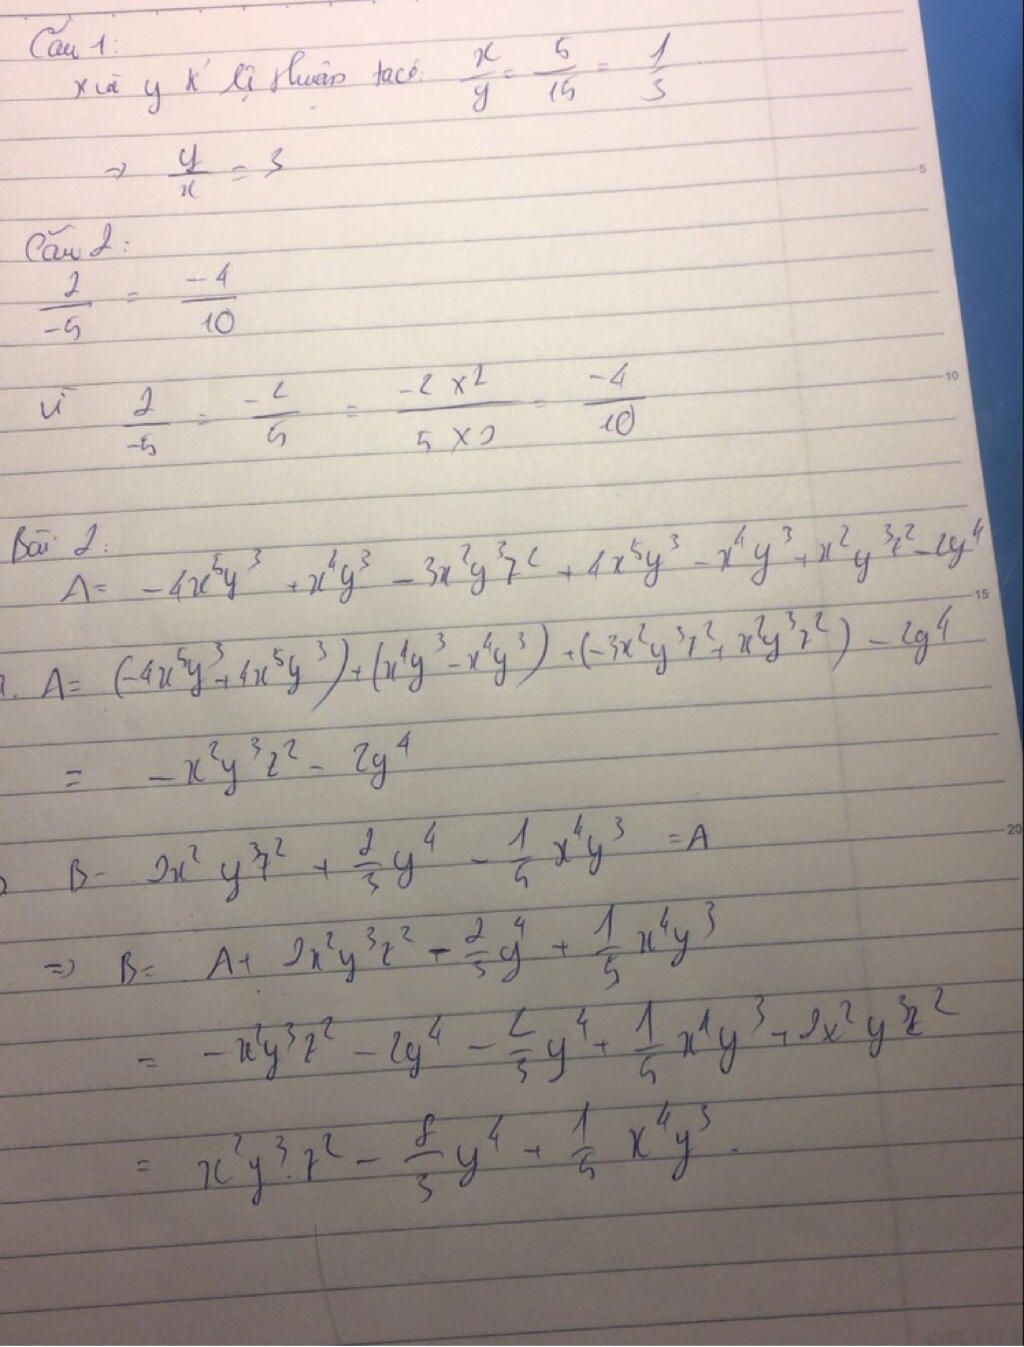 Câu 1:
x và y tỉ lệ thuận ta có: x/y = 5/15 = 1/3
⇒ y/x = 3
5
Câu 2:
2/-5 = -4/10
10
Vì 2/-5 = -2/5 = -2 x 2/5 x 2 = -4/10
Bài 2:
A = -4x⁵y³ + x⁴y³ - 3x²y³z² + 4x⁵y³ - x⁴y³ + x²y³z² - 2y⁴
15
A = (-4x⁵y³ + 4x⁵y³) + (x⁴y³ - x⁴y³) + (-3x²y³z² + x²y³z²) - 2y⁴
= -x²y³z² - 2y⁴
20
B - 2x²y³z² + 2/3y⁴ - 1/5x⁴y³ = A
⇒ B = A + 2x²y³z² - 2/3y⁴ + 1/5x⁴y³
= -x²y³z² - 2y⁴ - 2/3y⁴ + 1/5x⁴y³ + 2x²y³z²
= x²y³.z² - 8/3y⁴ + 1/5x⁴y³.